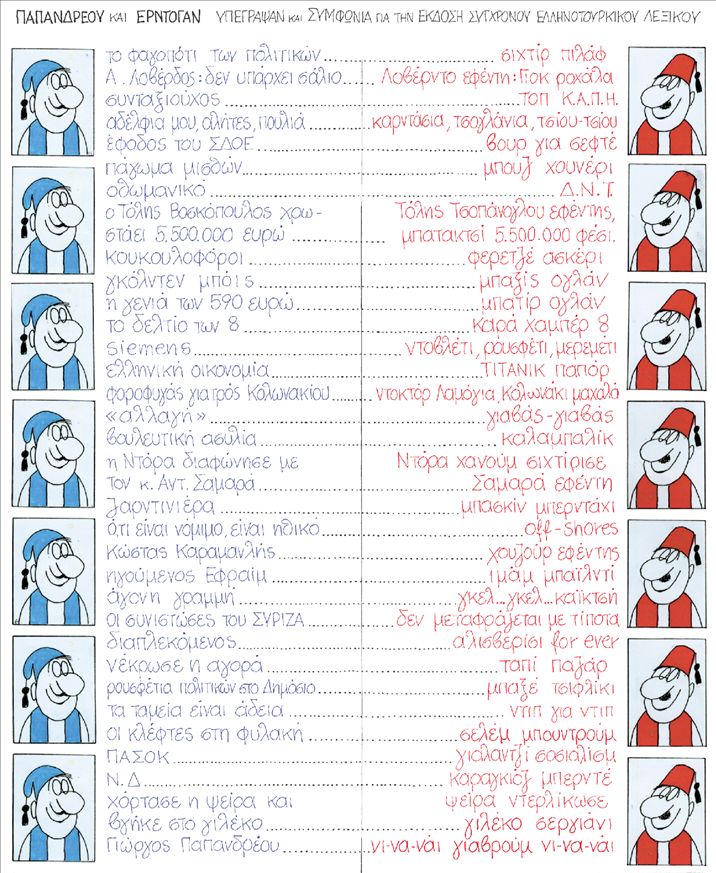 ΠΑΠΑΝΔΡΕΟΥ ΚΑΙ ΕΡΝΤΟΓΑΝ ΥΠΕΓΡΑΨΑΝ ΚΑΙ ΣΥΜΦΩΝΙΑ ΓΙΑ ΤΗΝ ΕΚΔΟΣΗ ΣΥΓΧΡΟΝΟΥ ΕΛΛΗΝΟΤΟΥΡΚΙΚΟΥ ΛΕΞΙΚΟΥ
το φαγοπότι των πολιτικών..........σιχτίρ πιλάφ
Α. Λοβέρδος: δεν υπάρχει σάλιο..........Λοβέρντο εφέντη: Γιοκ ροχάλα
συνταξιούχος..........τοπ Κ.Α.Π.Η.
αδέλφια μου, αλήτες, πουλιά..........καρντάσια, τσογλάνια, τσίου-τσίου
έφοδος του ΣΔΟΕ..........βουρ για σεφτέ
πάγωμα μισθών..........μπουζ χουνέρι
οθωμανικό..........Δ.Ν.Τ
ο Τόλης Βοσκόπουλος χρω- Τόλης Τσοπάνογλου εφέντης,
στάει 5.500.000 ευρώ..........μπατακτσί 5.500.000 φέσι.
κουκουλοφόροι..........φερετζέ ασκέρι
γκόλντεν μπόις..........μπαξίς ογλάν
η γενιά των 590 ευρώ..........μπατίρ ογλάν
το δελτίο των 8..........καρά χαμπέρ 8
siemens..........ντοβλέτι, ράυσφέτι, μερεμέτι
ελληνική οικονομία..........ΤΙΤΑΝΙΚ παπόρ
φοροφυγάς γιατρός Κολωνακίου..........ντοκτόρ Λαμόγια, Κολωνάκι μαχαλά
«αλλαγή»..........γιαβάς-γιαβάς
βουλευτική ασυλία..........καλαμπαλίκ
η Ντόρα διαφώνησε με Ντόρα χανούμ σιχτίρισε
τον κ. Αντ. Σαμαρά..........Σαμαρά εφέντη
ζαρντινιέρα..........μπασκίν μπερντάχι
ό,τι είναι νόμιμο, είναι ηθικό..........off-shores
Κώστας Καραμανλής..........χουζούρ εφέντης
ηγούμενος Εφραίμ..........ιμάμ μπαϊλντί
άγονη γραμμή..........γκελ...γκελ...καϊκτσή
οι συνιστώσες του ΣΥΡΙΖΑ..........δεν μεταφράζεται με τίποτα
διαπλεκόμενος..........αλισβερίσι for ever
νέκρωσε η αγορά..........ταπί παζάρ
ρουσφέτια πολιτικών στο Δημόσιο..........μπαξέ τσιφλίκι
τα ταμεία είναι άδεια..........ντιπ για ντιπ
οι κλέφτες στη φυλακή..........σελέμ μπουντρούμ
ΠΑΣΟΚ..........γιαλαντζί σοσιαλίσμ
Ν.Δ..........καραγκιόζ μπερντέ
χόρτασε η ψείρα και ψείρα ντερλίκωσε
βγήκε στο γιλέκο..........γιλέκο σεργιάνι
Γιώργος Παπανδρέου..........νι-να-νάι γιαβρούμ νι-να-νάι